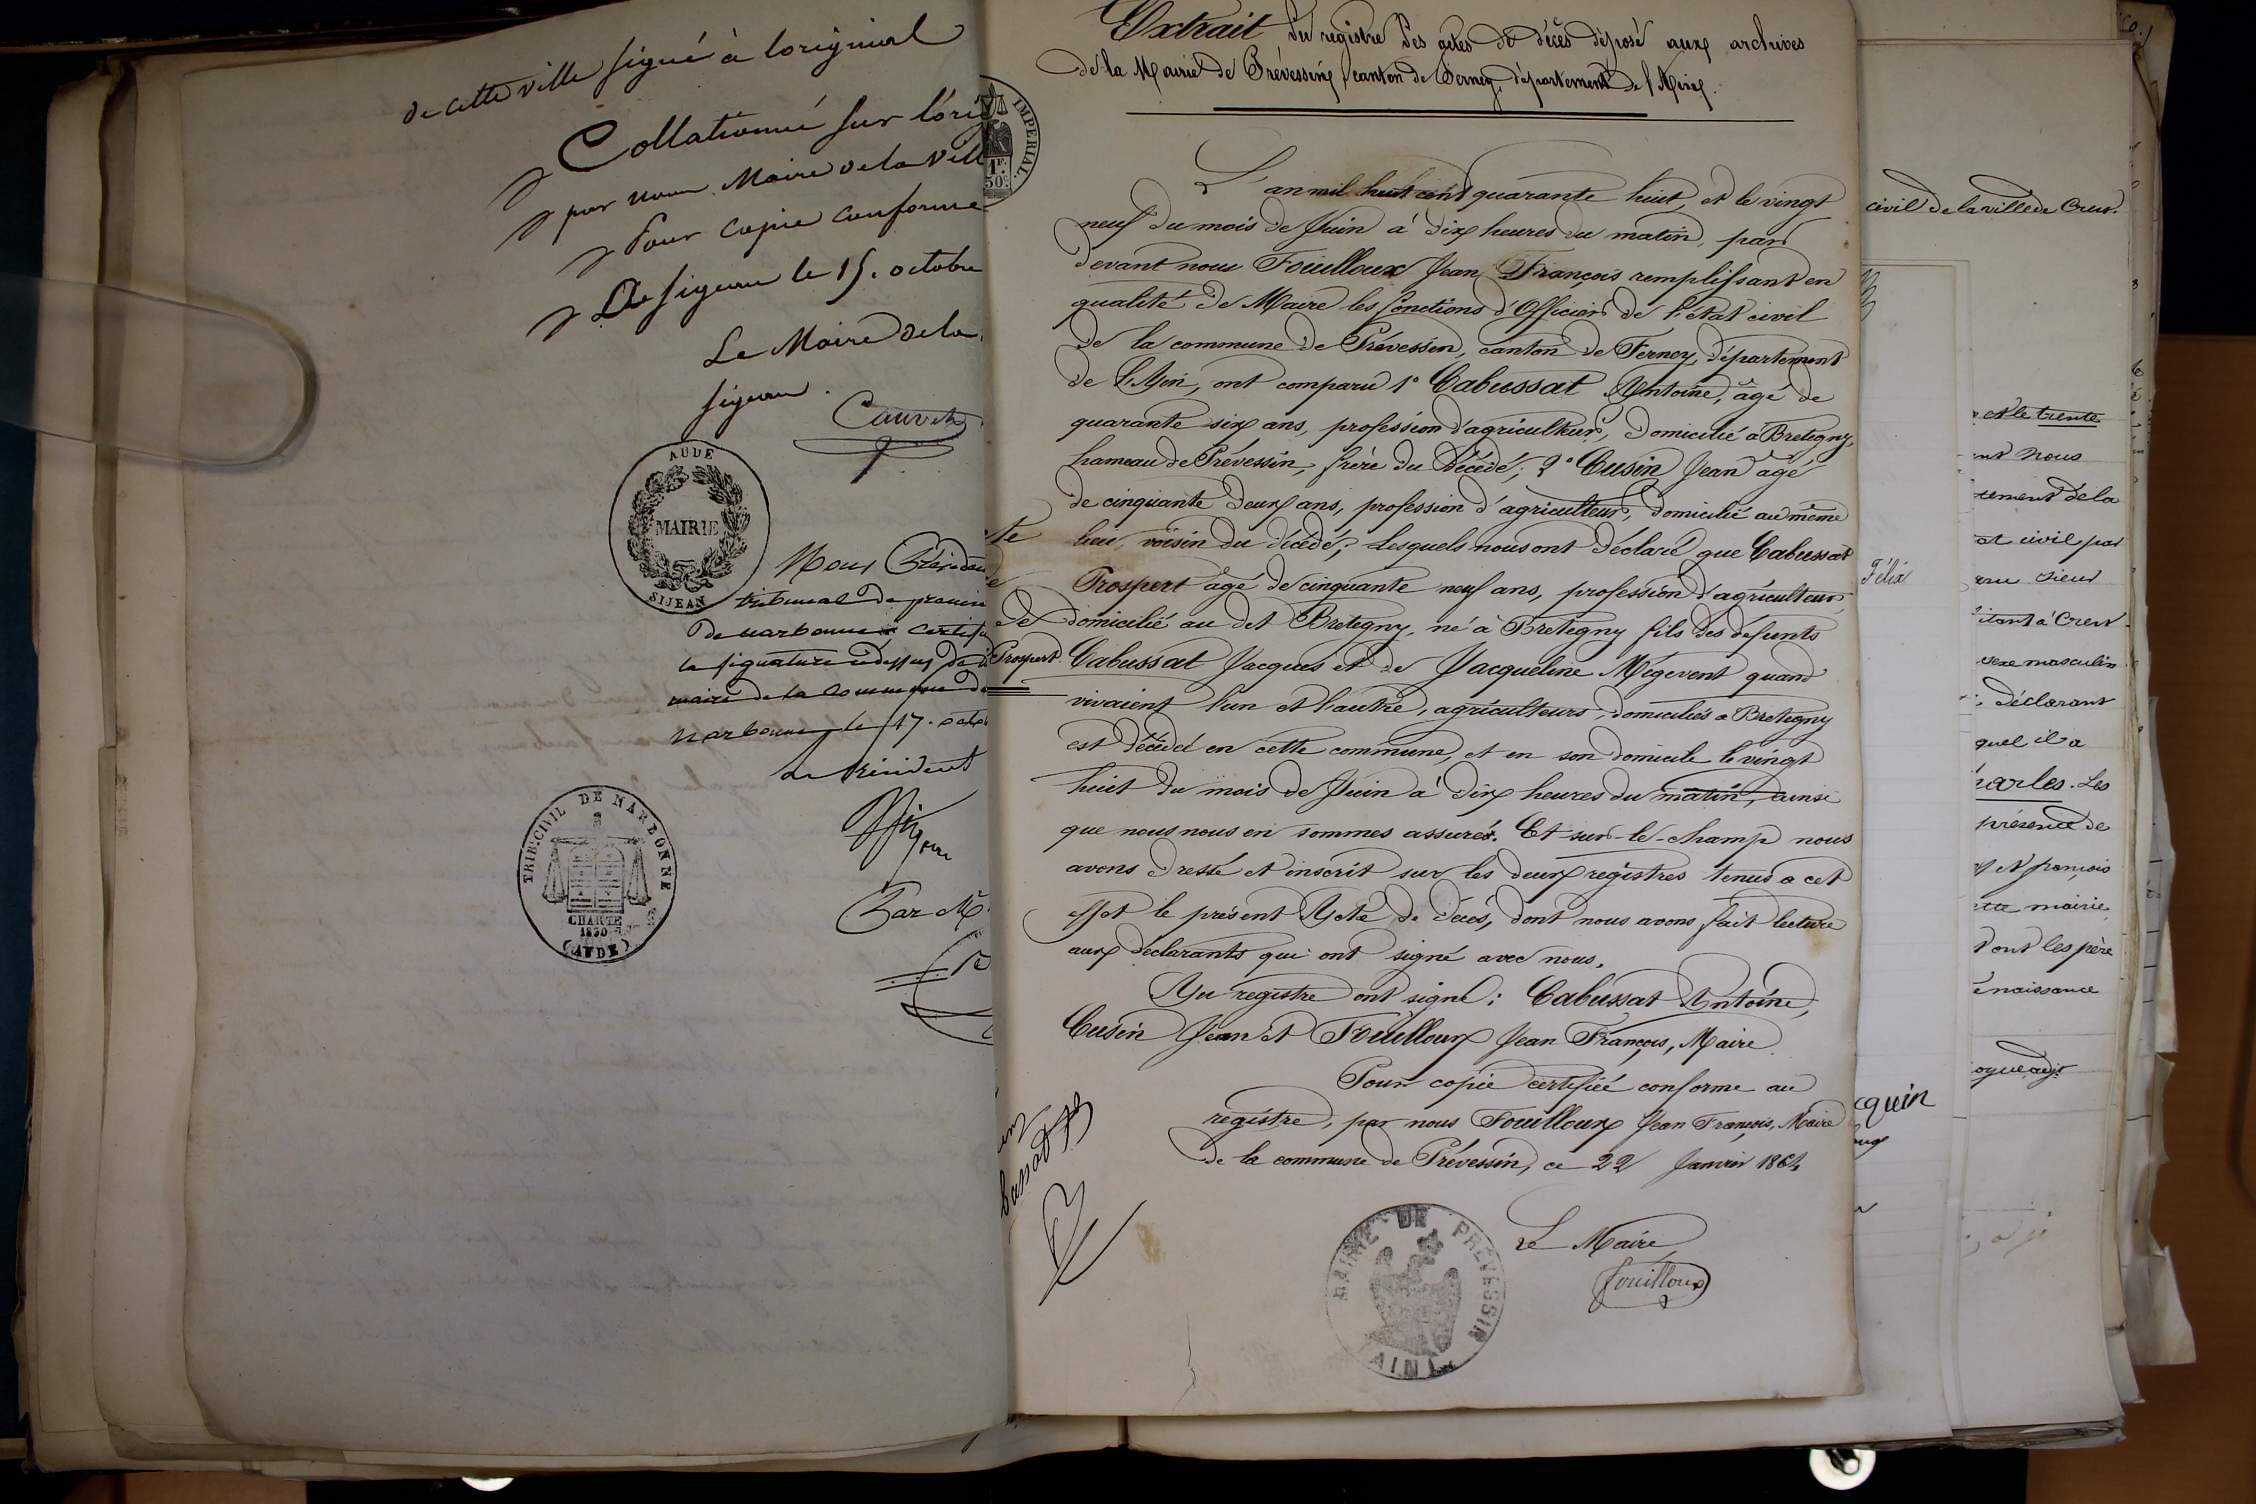 de cette ville signé à loriginal
Collationné sur l'ori
par nous Maire de la Vill
Pour copie conforme
le 15. octobre
Le Maire de la
sigean.
Cauvet
AUDE
MAIRIE
SIJEAN
Nous Présiden
tribunal de premie
de narbonne certif
la signature
maire de la commune de
Narbonne le 17. octo
le Président
TRIB. CIVIL DE NARBONNE
CHARTE
1830
(AUDE)
Par M
IMPERIAL.
1F.
50c
Extrait du registre des actes de décès déposé aux archives
de la Mairie de Prévessin, canton de Ferney, département de l'Ain.
L'an mil huit cent quarante huit, et le vingt
neuf du mois de Juin à dix heures du matin, par
devant nous Fouilloux Jean François remplissant en
qualité de Maire les fonctions d'Officier de l'état civil
de la commune de Prévessin, canton de Ferney, département
de l'Ain, ont comparu 1° Cabussat Antoine, âgé de
quarante six ans, profession d'agriculteur, domicilié à Bretigny,
hameau de Prévessin, frère du décédé; 2° Cusin Jean âgé
de cinquante deux ans, profession d'agriculteur, domicilié au même
lieu, voisin du décédé; Lesquels nous ont déclaré que Cabussat
Prospert âgé de cinquante neuf ans, profession d'agriculteur,
domicilié au dit Bretigny, né à Bretigny fils des défunts
Cabussat Jacques et de Jacqueline Mégevent quand
vivaient l'un et l'autre, agriculteurs, domiciliés à Bretigny
est décédé en cette commune, et en son domicile le vingt
huit du mois de Juin à dix heures du matin, ainsi
que nous nous en sommes assurés. Et sur-le-champ nous
avons dressé et inscrit sur les deux registres tenus à cet
effet le présent Acte de décès, dont nous avons fait lecture
aux déclarants qui ont signé avec nous.
Au registre ont signé: Cabussat Antoine,
Cusin Jean et Fouilloux Jean François, Maire.
Pour copie certifiée conforme au
registre, par nous Fouilloux Jean François, Maire
de la commune de Prévessin, ce 22 Janvier 1864
Le Maire
Fouilloux
MAIRIE DE PREVESSIN
(AIN)
te
De
Prospert
civil de la ville de Crest.
Félix
cquin
et le trente
ent Nous
at civil par
sieur
itant à Crest
sexe masculin
, déclarant
quel il a
harles. Les
présence de
et françois
ette mairie
dont les père
e naissance